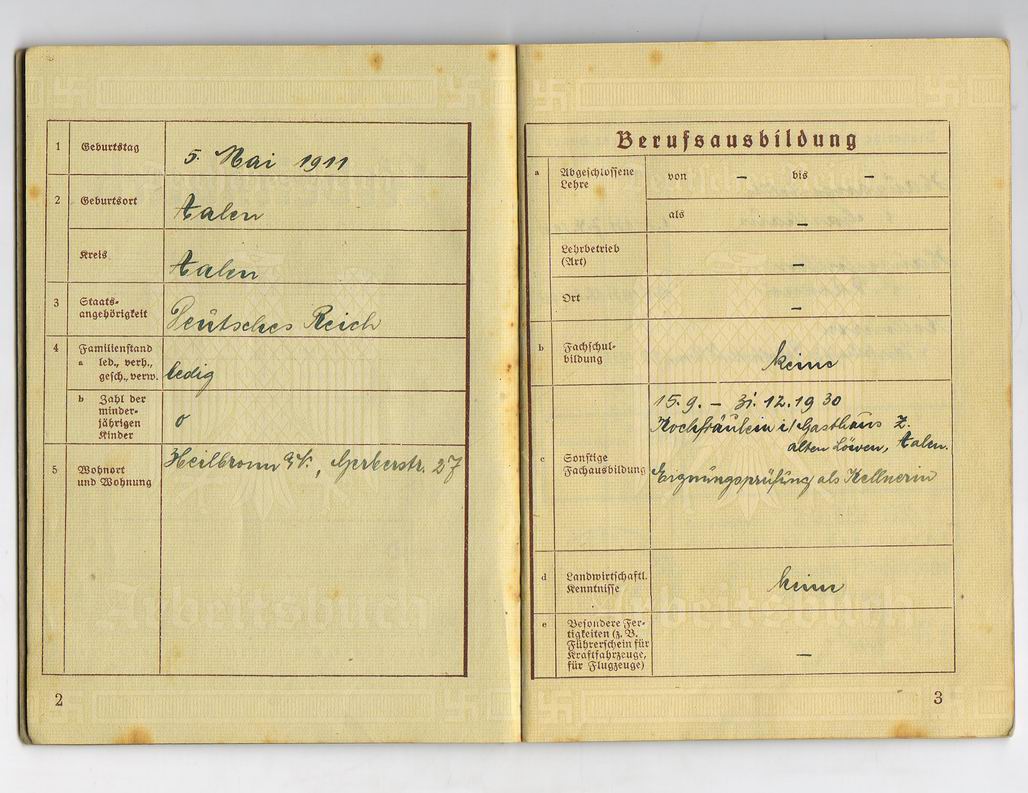 1 Geburtstag 5. Mai 1911
2 Geburtsort Aalen
Kreis Aalen
3 Staats-
angehörigkeit Deutsches Reich
4 Familienstand
a led., verh.,
gesch., verw. ledig
b Zahl der
minder-
jährigen
Kinder 0
5 Wohnort
und Wohnung Heilbronn a/N., Gerberstr. 27
Arbeitsbuch
2
Berufsausbildung
a Abgeschlossene
Lehre von – bis –
als –
Lehrbetrieb
(Art) –
Ort –
b Fachschul-
bildung keine
c Sonstige
Fachausbildung
15.9. – 31.12.1930
Kochfräulein i/Gasthaus z.
alten Löwen, Aalen.
Eignungsprüfung als Kellnerin
d Landwirtschaftl.
Kenntnisse keine
e Besondere Fer-
tigkeiten (z. B.
Führerschein für
Kraftfahrzeuge,
für Flugzeuge) –
Arbeitsbuch
3